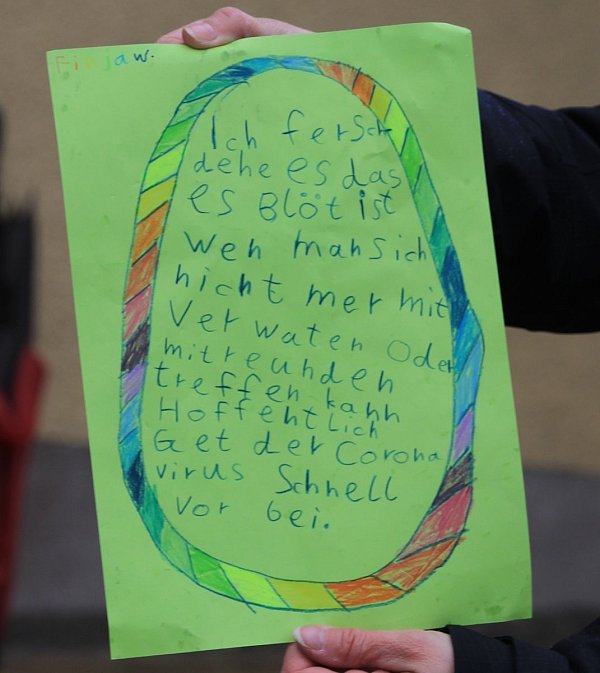 Finjaw.
Ich fersch
dehe es das
es Blöt ist
wen man sich
nicht mer mit
Verwaten Oder
mitreunden
treffen kann
Hoffentlich
Get der Corona
virus Schnell
vor bei.